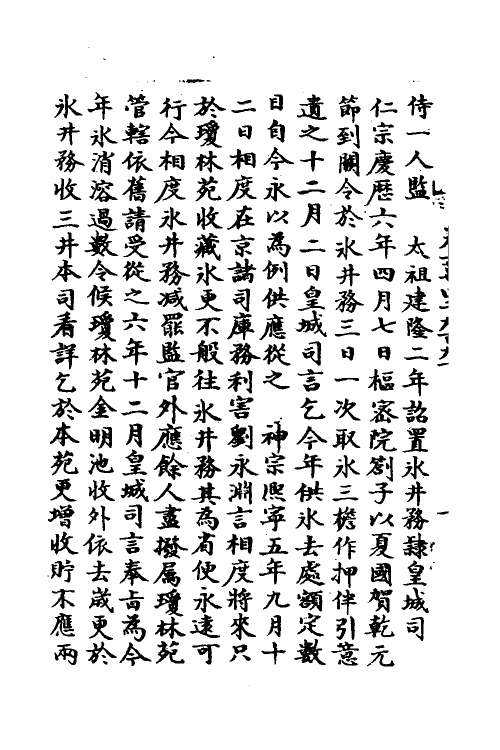 侍一人監　太祖建隆二年詔置氷井務隷皇城司
仁宗慶歷六年四月七日樞密院劄子以夏國賀乾元
節到闕令於氷井務三日一次取氷三檐作押伴引意
遺之十二月二日皇城司言乞今年供氷去處額定數
目自今永以為例供應從之　神宗熙寧五年九月十
二日相度在京諸司庫務利害劉永淵言相度將來只
於瓊林苑收藏氷更不般往氷井務其為省便永遠可
行今相度氷井務減罷監官外應餘人盡撥屬瓊林苑
管轄依舊請受從之六年十二月皇城司言奉旨為今
年氷消溶過數令候瓊林苑金明池收外依去歲更於
氷井務收三井本司看詳乞於本苑更增收貯不應兩